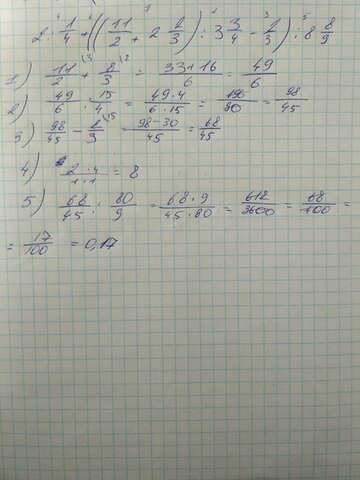 2 : 1/4 + ((11/2 + 2 2/3) : 3 3/4 - 2/3) : 8 8/9
1) 11/2 + 8/3 = 33+16/6 = 49/6
2) 49/6 : 15/4 = 49·4/6·15 = 196/90 = 98/45
3) 98/45 - 2/3 = 98-30/45 = 68/45
4) 2·4/1·1 = 8
5) 68/45 : 80/9 = 68·9/45·80 = 612/3600 = 68/400 =
= 17/100 = 0,17